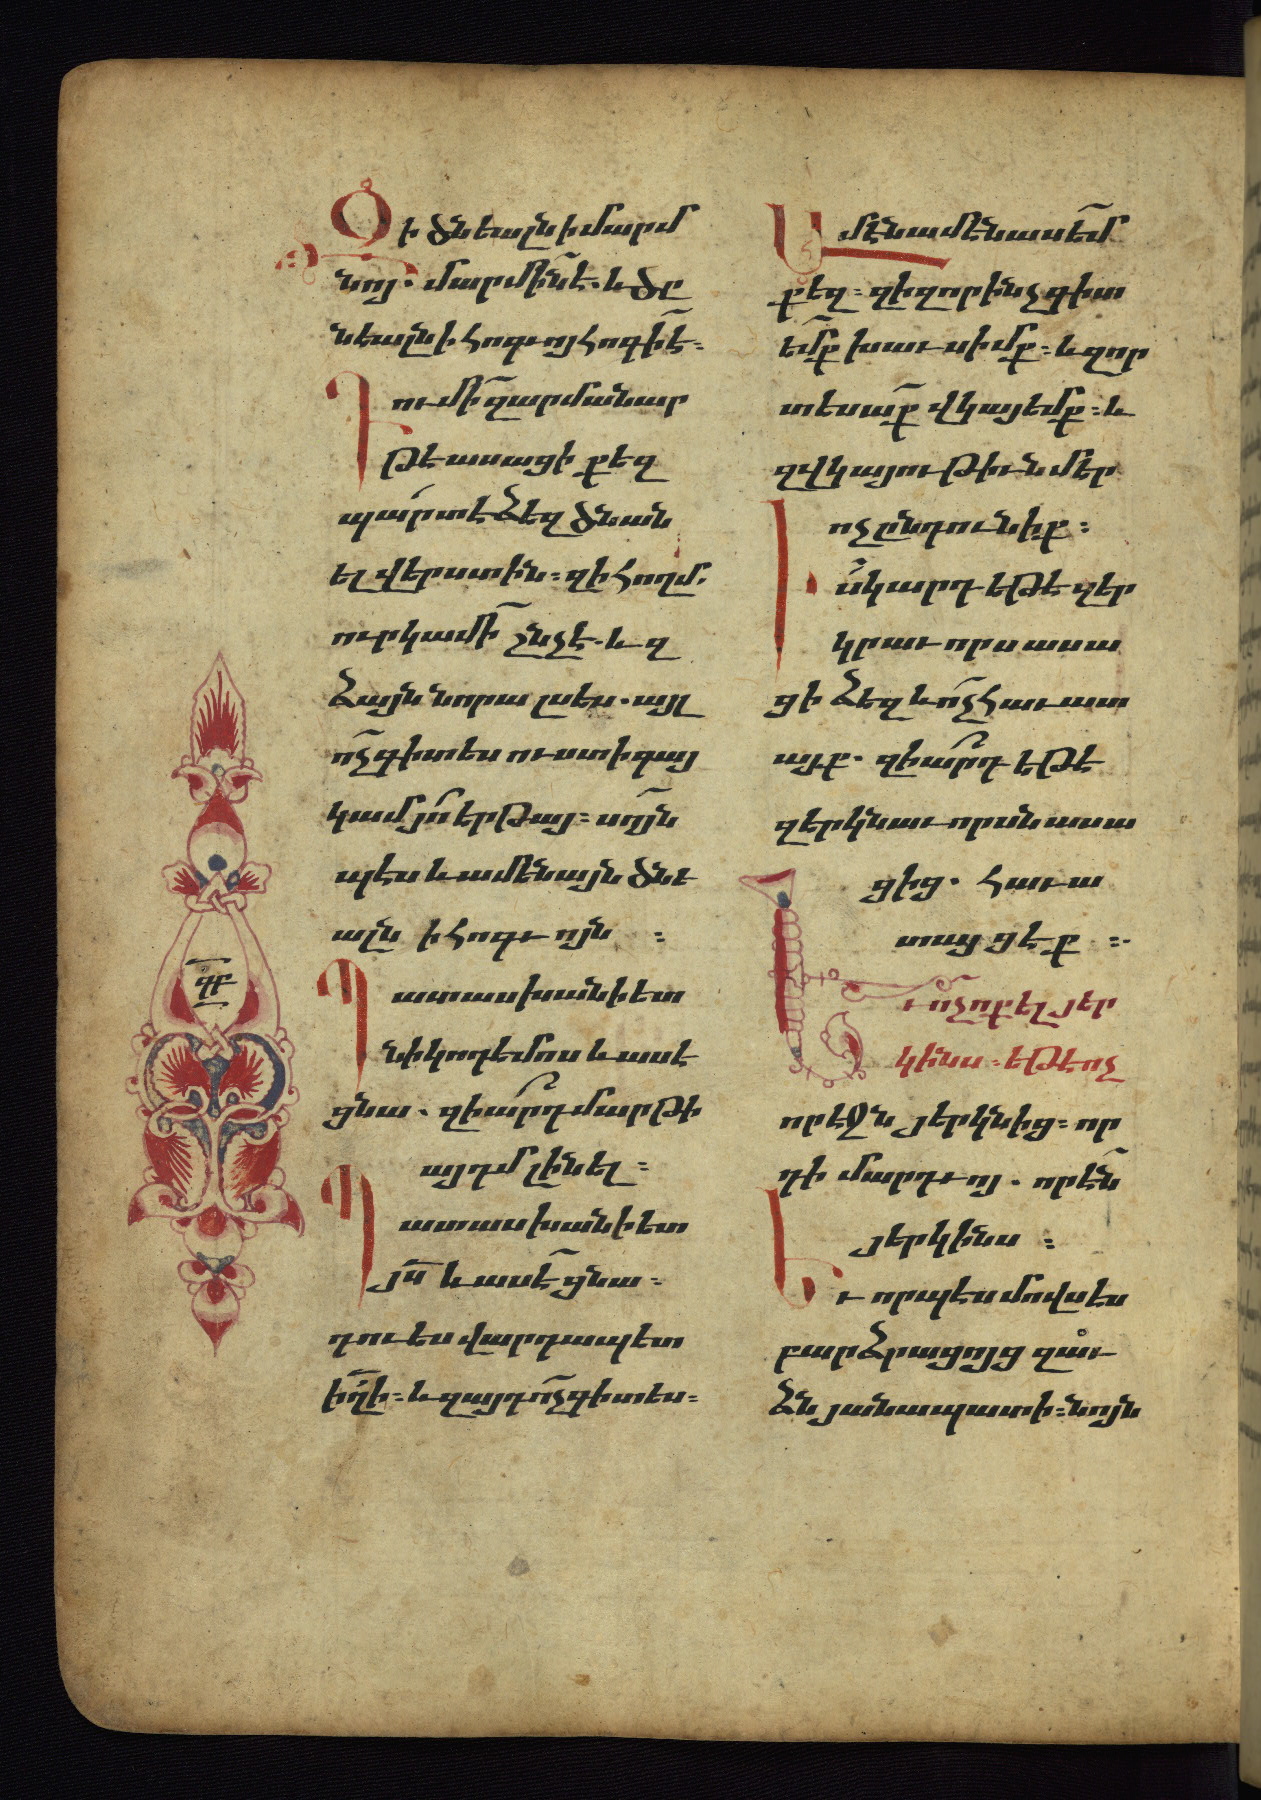 Զի ծնեալն ի մարմ
նոյ. մարմին է. և ծը
նեալն ի հոգւոյ հոգի է:
Դու մի զարմանար
թե ասացի քեզ
պարտ է ձեզ ծնան
ել վերստին: զի հողմ.
ուր կամի շնչէ. և զ
ձայն նորա լսես. այլ
ոչ գիտես ուստի գայ
կամ յո երթայ: սոյն
պես և ամենայն ծնե
ալն ի հոգւոյն :
Պատասխանի ետ
նիկոդեմոս և ասէ
ցնա. զիարդ մարթի
այդմ լինել:
Պատասխանի ետ
յս և ասէ ցնա:
դու ես վարդապետ
իղի: և զայդ ոչ գիտես:
զբ
Ամէն ամէն ասեմ
քեզ: զի զոր ինչ գիտ
եմք խաւսիմք: և զոր
տեսաք վկայեմք: և
զվկայութիւն մեր
ոչ ընդունիք:
Իսկ արդ եթե զեր
կրաւորս ասա
ցի ձեզ և ոչ հաւատ
այք. զիարդ եթէ
զերկնաւորսն ասա
ցից. հաւա
տայցէք :.
Եւ ոչ ոք ել յեր
կինս: եթե ոչ
որ էջն յերկնից: որ
դի մարդւոյ. որ էն
յերկինս :
Եւ որպես մովսես
բարձրացոյց զաւ
ձն յանապատի: նոյն